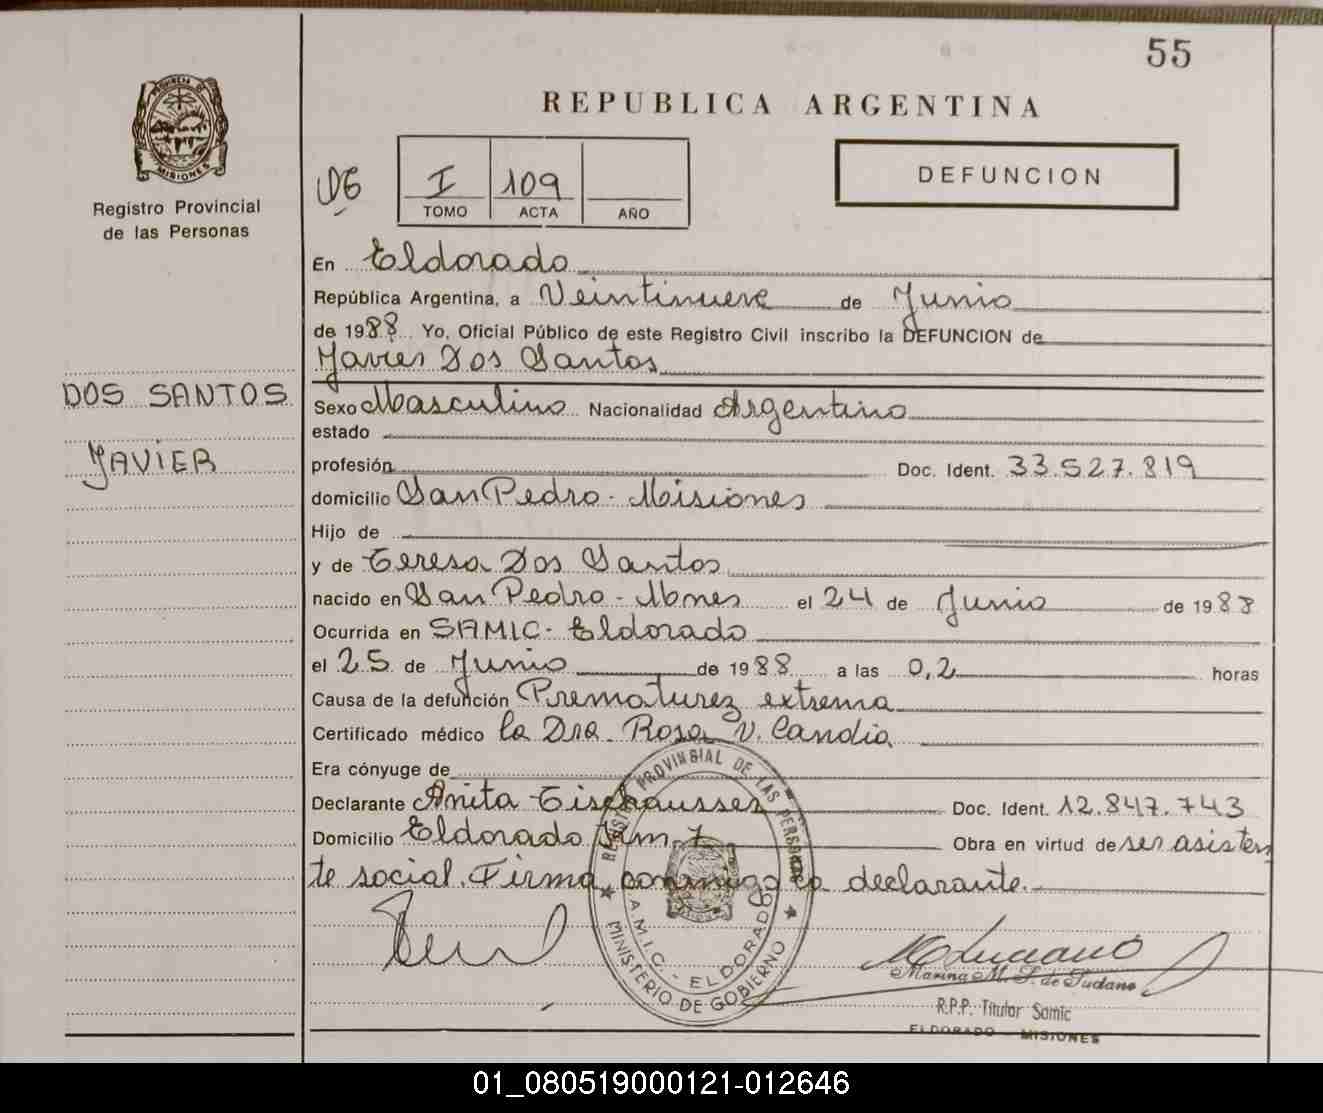 55
PROVINCIA DE
MISIONES
Registro Provincial
de las Personas
REPUBLICA ARGENTINA
DEFUNCION
I 109
TOMO ACTA AÑO
En Eldorado
República Argentina, a Veintinueve de Junio
de 1988. Yo, Oficial Público de este Registro Civil inscribo la DEFUNCION de
Javier Dos Santos
DOS SANTOS
JAVIER
Sexo Masculino Nacionalidad Argentino
estado
profesión Doc. Ident. 33.527.819
domicilio San Pedro - Misiones
Hijo de
y de Teresa Dos Santos
nacido en San Pedro - Mnes el 24 de Junio de 1988
Ocurrida en SAMIC - Eldorado
el 25 de Junio de 1988 a las 0,2 horas
Causa de la defunción Prematurez extrema
Certificado médico la Dra. Rosa V. Candia
Era cónyuge de
Declarante Anita Doc. Ident. 12.847.743
Domicilio Eldorado km 7 Obra en virtud de ser asisten
te social. Firma conmigo la declarante.
REGISTRO PROVINCIAL DE LAS PERSONAS
S.A.M.I.C. - ELDORADO
MINISTERIO DE GOBIERNO
Marina M. de
R.P.P. Titular Samic
ELDORADO - MISIONES
01_080519000121-012646